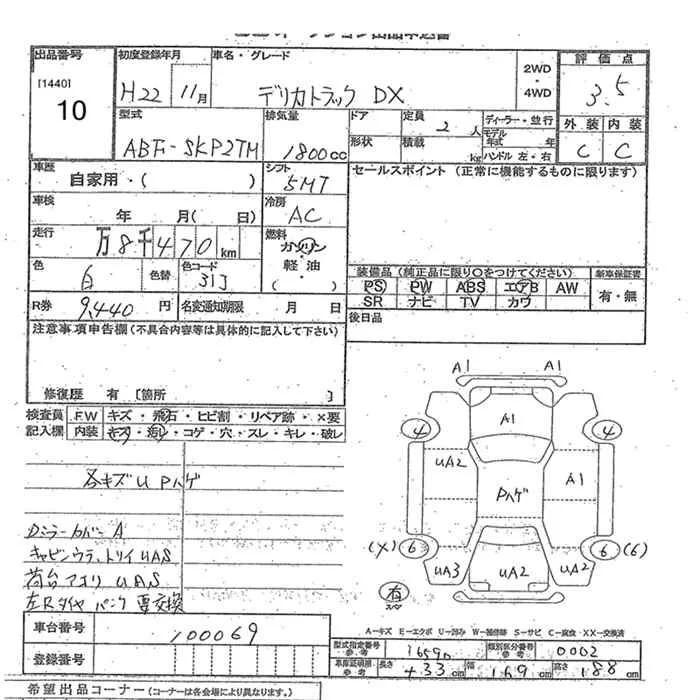 出品番号
[1440]
10
初度登録年月
H22 11月
車名・グレード
デリカトラック DX
2WD
・
4WD
評価点
3.5
外装 内装
C C
型式
ABF-SKP2TM
排気量
1800cc
ドア
定員 2人
形状
積載 kg
ディーラー・並行
モデル年式 年
ハンドル 左・右
車歴
自家用・( )
シフト
5MT
セールスポイント (正常に機能するものに限ります)
車検
年 月( 日)
冷房
AC
走行
万8千470km
燃料
ガソリン
軽・油
( )
色
白
色替
色コード
31J
装備品(純正品に限り○をつけてください)
新車保証書
PS PW ABS エアB AW
有・無
SR ナビ TV カワ
R券 9,440円
名変通知期限 月 日
後日品
注意事項申告欄(不具合内容等は具体的に記入して下さい)
修復歴 有 [箇所 ]
検査員
記入欄
F.W キズ・飛石・ヒビ割・リペア跡・×要
内装 キズ・汚れ・コゲ・穴・スレ・キレ・破レ
各キズU Pハゲ
Dミラーカバー A
キャビンウラ、トリイUAS
荷台アオリ UAS
左Rタイヤ パンク 要交換
A1 A1
A1
4 4
UA2
Pハゲ
A1
(×) 6 6 (6)
UA3 UA2 UA2
有
スペア
A-キズ E-エクボ U-凹み W-補修跡 S-サビ C-腐食 XX-交換済
車台番号
100069
登録番号
型式指定番号
参考
類別区分番号
参考
0002
車庫証明用
参考
長さ 433cm
幅 169cm
高さ 188cm
希望出品コーナー(コーナーは各会場により異なります。)